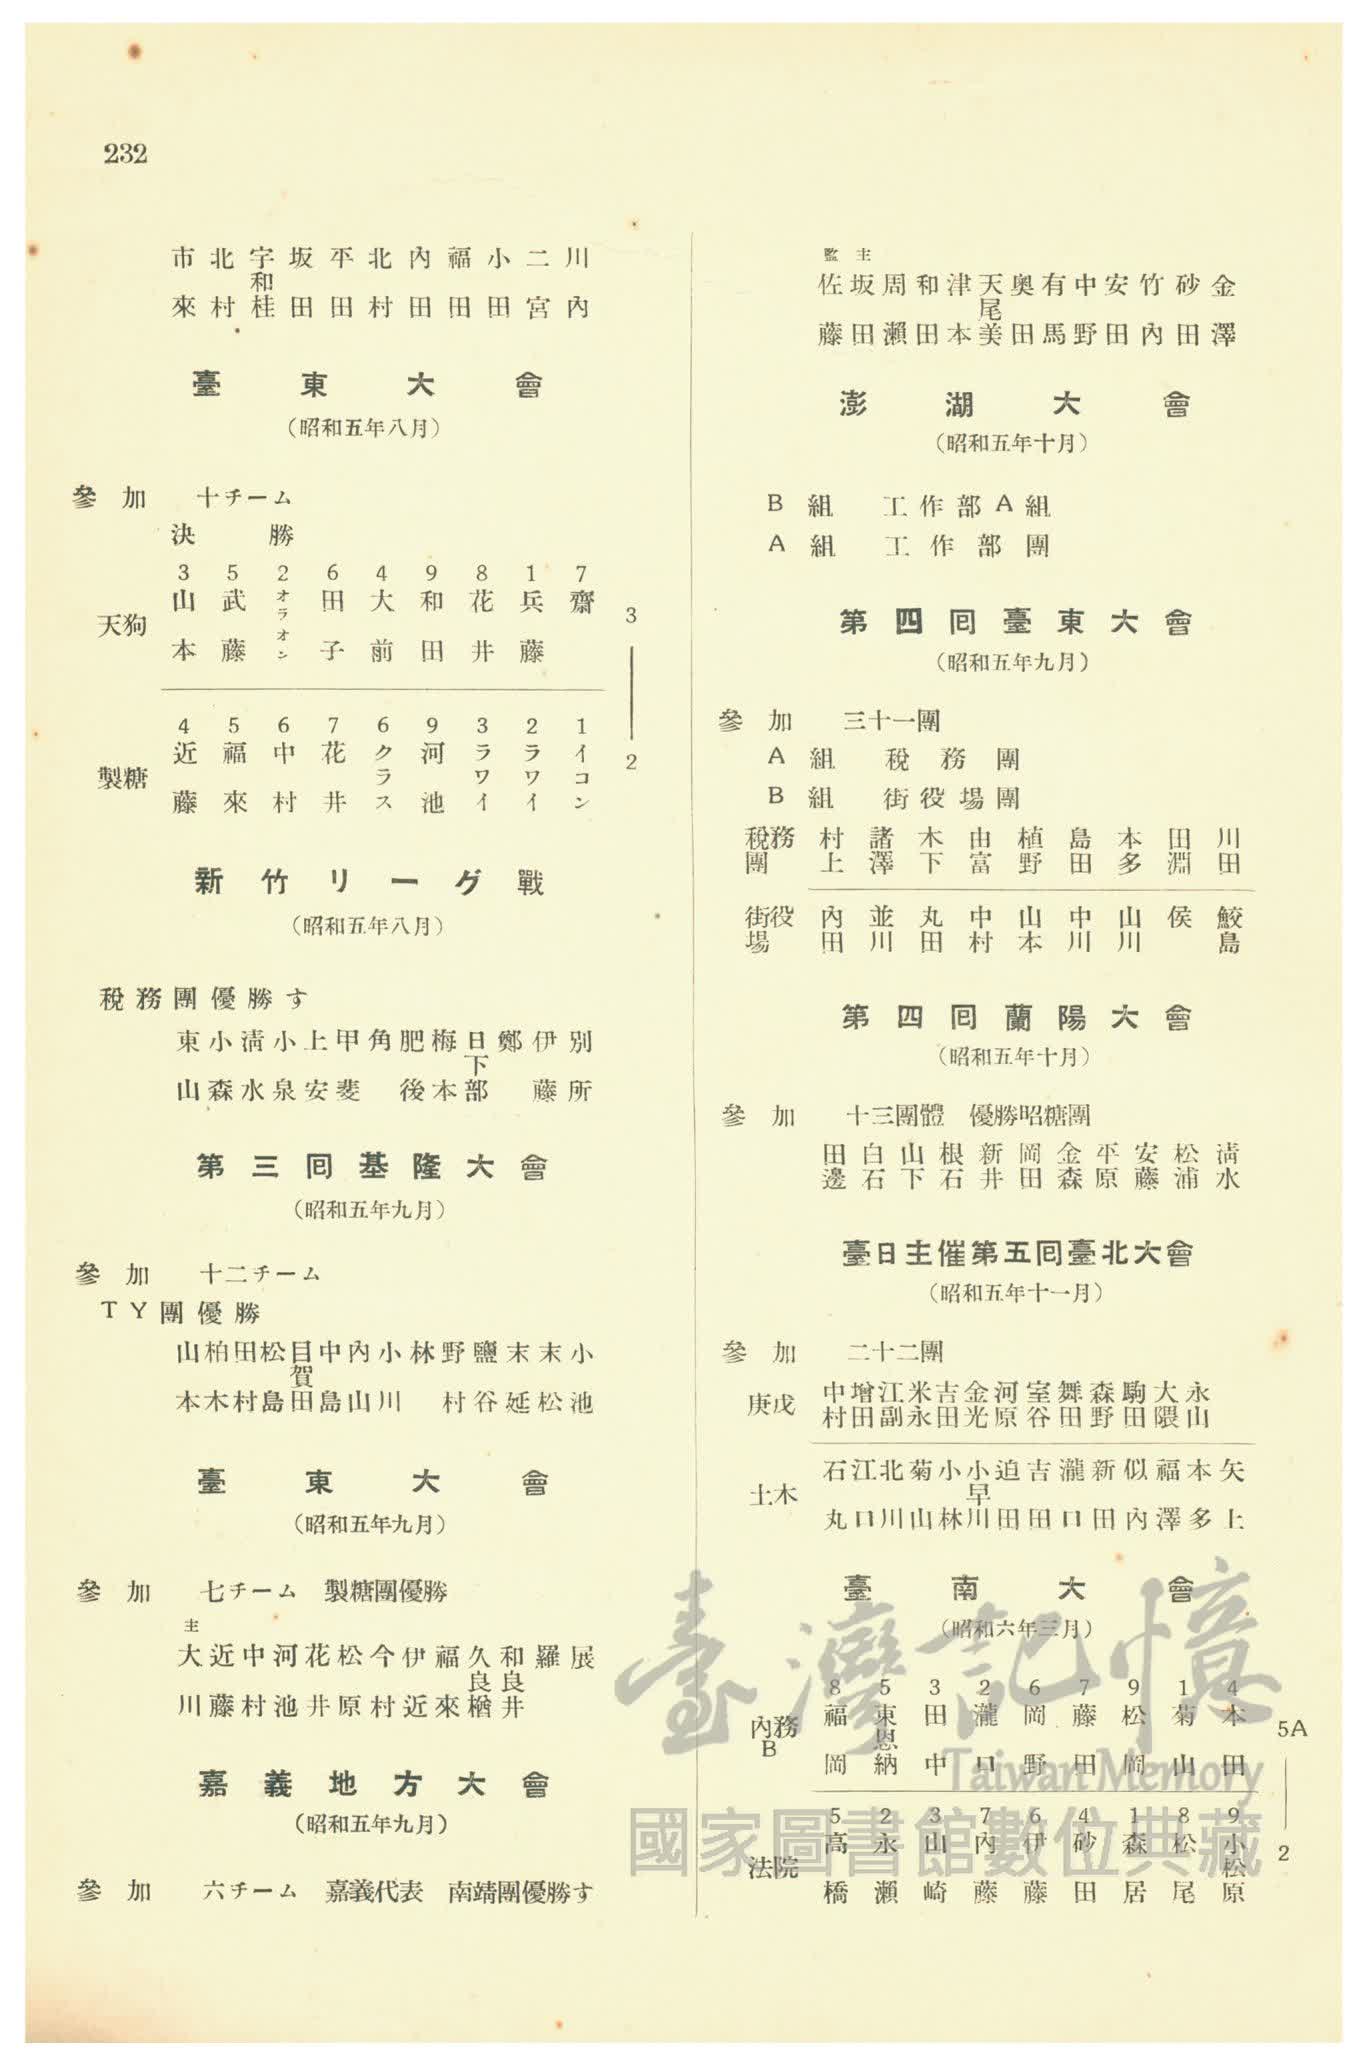 232
市來 北村 宇和桂 坂田 平田 北村 內田 福田 小田 二宮 川內
臺東大會
（昭和五年八月）
參加 十チーム
決勝
3 5 2 6 4 9 8 1 7
天狗 山本 武藤 オラオン 田子 大前 和田 花井 兵藤 齋
3 — 2
4 5 6 7 6 9 3 2 1
製糖 近藤 福來 中村 花井 クラス 河池 ラワイ ラワイ イコン
新竹リーグ戰
（昭和五年八月）
稅務團優勝す
東山 小森 淸水 小泉 上安 甲斐 角 肥後 梅本 日下部 鄭 伊藤 別所
第三囘基隆大會
（昭和五年九月）
參加 十二チーム
TY團優勝
山本 柏木 田村 松島 目賀田 中島 內山 小川 林 野村 鹽谷 末延 末松 小池
臺東大會
（昭和五年九月）
參加 七チーム 製糖團優勝
主
大川 近藤 中村 河池 花井 松原 今村 伊近 福來 久良楢 和良井 羅 展
嘉義地方大會
（昭和五年九月）
參加 六チーム 嘉義代表 南靖團優勝す
監 主
佐藤 坂田 周瀨 和田 津本 天尾美 奧田 有馬 中野 安田 竹內 砂田 金澤
澎湖大會
（昭和五年十月）
B組 工作部A組
A組 工作部團
第四囘臺東大會
（昭和五年九月）
參加 三十一團
A組 稅務團
B組 街役場團
稅務團 村上 諸澤 木下 由富 植野 島田 本多 田淵 川田
街役場 內田 並川 丸田 中村 山本 中川 山川 侯 鮫島
第四囘蘭陽大會
（昭和五年十月）
參加 十三團體 優勝昭糖團
田邊 白石 山下 根石 新井 岡田 金森 平原 安藤 松浦 淸水
臺日主催第五囘臺北大會
（昭和五年十一月）
參加 二十二團
庚戊 中村 增田 江副 米永 吉田 金光 河原 室谷 舞田 森野 駒田 大隈 永山
土木 石丸 江口 北川 菊山 小林 小早川 迫田 吉田 瀧口 新田 似內 福澤 本多 矢上
臺南大會
（昭和六年三月）
8 5 3 2 6 7 9 1 4
內務B 福岡 東恩納 田中 瀧口 岡野 藤田 松岡 菊山 本田
5A — 2
5 2 3 7 6 4 1 8 9
法院 高橋 永瀨 山崎 內藤 伊藤 砂田 森居 松尾 小松原
臺灣記憶
Taiwan Memory
國家圖書館數位典藏